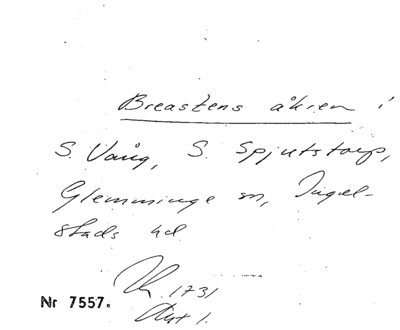 Breastens åkren i
S. Vång, S. Spjutstorp,
Glemminge sn, Ingel-
stads hd
1731
Nr 7557.
1.